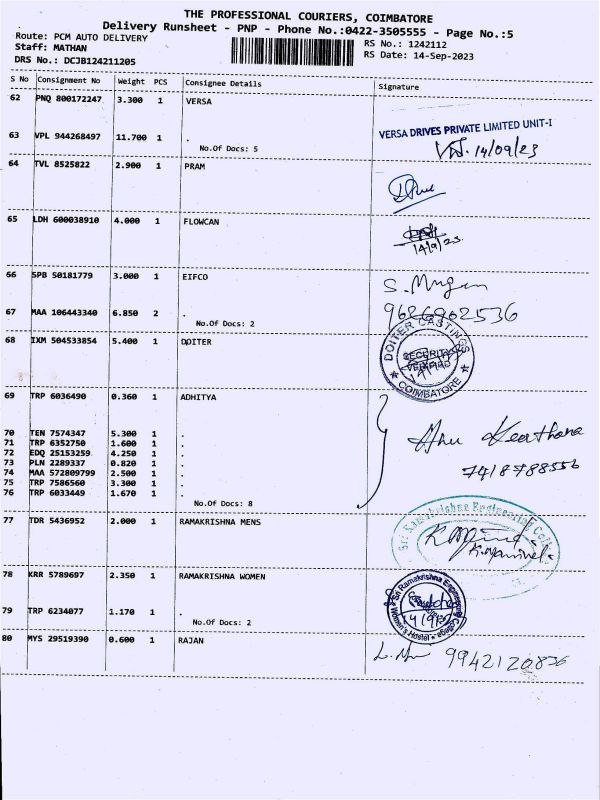 THE PROFESSIONAL COURIERS, COIMBATORE
Delivery Runsheet - PNP - Phone No.:0422-3505555 - Page No.:5
Route: PCM AUTO DELIVERY
Staff: MATHAN
DRS No.: DCJB124211205
RS No.: 1242112
RS Date: 14-Sep-2023
S No Consignment No Weight PCS Consignee Details Signature
62 PNQ 800172247 3.300 1 VERSA
VERSA DRIVES PRIVATE LIMITED UNIT-I
63 VPL 944268497 11.700 1 .
No.Of Docs: 5
14/09/23
64 TVL 8525822 2.900 1 PRAM
65 LDH 600038910 4.000 1 FLOWCAN
14/9/23
66 SPB 50181779 3.000 1 EIFCO
S. Mugan
67 MAA 106443340 6.850 2 .
No.Of Docs: 2
9626902536
68 IXM 504533854 5.400 1 DOITER
DOITER CASTINGS
SECURITY
COIMBATORE
69 TRP 6036490 0.360 1 ADHITYA
70 TEN 7574347 5.300 1 .
71 TRP 6352750 1.600 1 .
72 EDQ 25153259 4.250 1 .
73 PLN 2289337 0.820 1 .
74 MAA 572809799 2.500 1 .
75 TRP 7586560 3.300 1 .
76 TRP 6033449 1.670 1 .
No.Of Docs: 8
Keerthana
7418788556
77 TDR 5436952 2.000 1 RAMAKRISHNA MENS
Sri Ramakrishna Engineering College
78 KRR 5789697 2.350 1 RAMAKRISHNA WOMEN
Sri Ramakrishna Engineering College
Women's Hostel
79 TRP 6234077 1.170 1 .
No.Of Docs: 2
80 MYS 29519390 0.600 1 RAJAN
9942120836